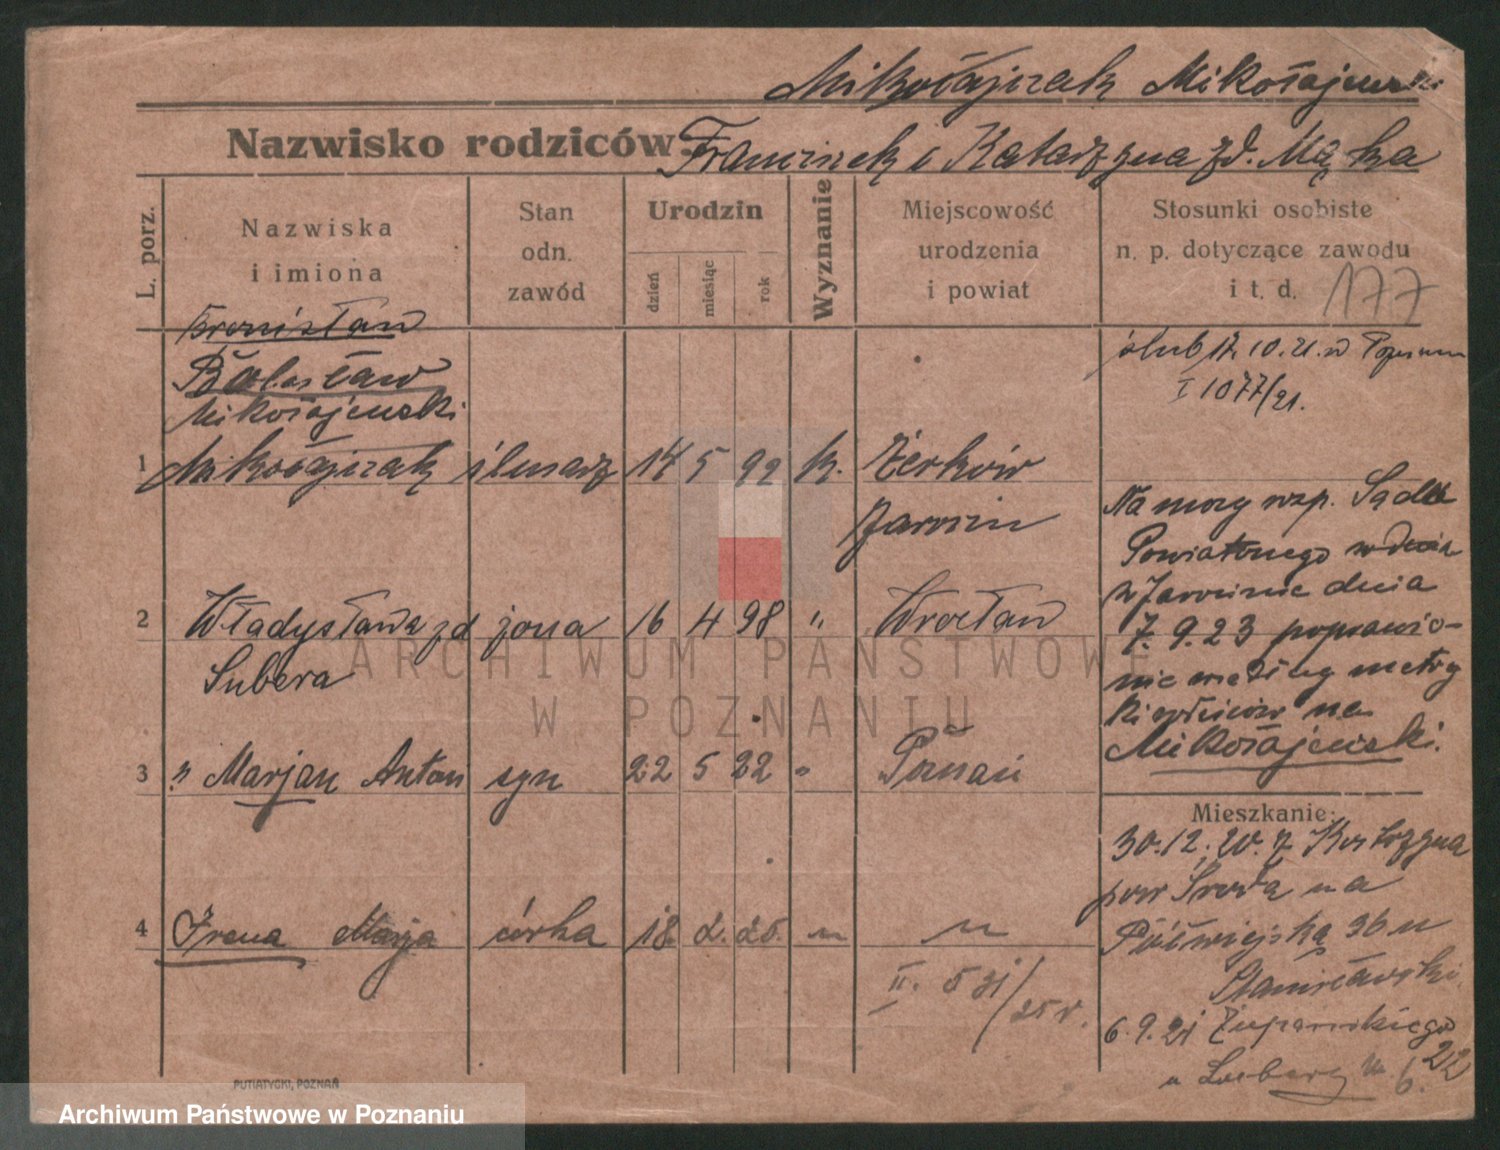 Mikołajczak Mikołajewski
Nazwisko rodziców: Franciszek i Katarzyna zd. Mąka
L. porz.
Nazwiska
i imiona
Stan
odn.
zawód
Urodzin
dzień
miesiąc
rok
Wyznanie
Miejscowość
urodzenia
i powiat
Stosunki osobiste
n. p. dotyczące zawodu
i t. d.
177
Bronisław
Bolesław
Mikołajewski
1 Mikołajczak ślusarz 14 5 92 k. Żerków
Jarocin
ślub 17. 10. 21. w Poznaniu
I 1077/21.
Na mocy rozp. Sądu
Powiatowego
w Jarocinie dnia
7. 9. 23 poprawio-
nie według metry
na
Mikołajewski.
2 Władysława zd żona 16 4 98 " Wrocław
Subera
3 " Marjan Antoni syn 22 5 22 " Poznań
4 Irena Marja córka 18. 2. 25. " "
II. 521/25 r.
Mieszkanie:
30. 12. 20. z Kostrzyna
pow Środa na
Półwiejską 36 u
Stanisławski
6. 9. 21 Żupańskiego
u m. 6. 22
PUTIATYCKI, POZNAŃ
ARCHIWUM PAŃSTWOWE
W POZNANIU
Archiwum Państwowe w Poznaniu